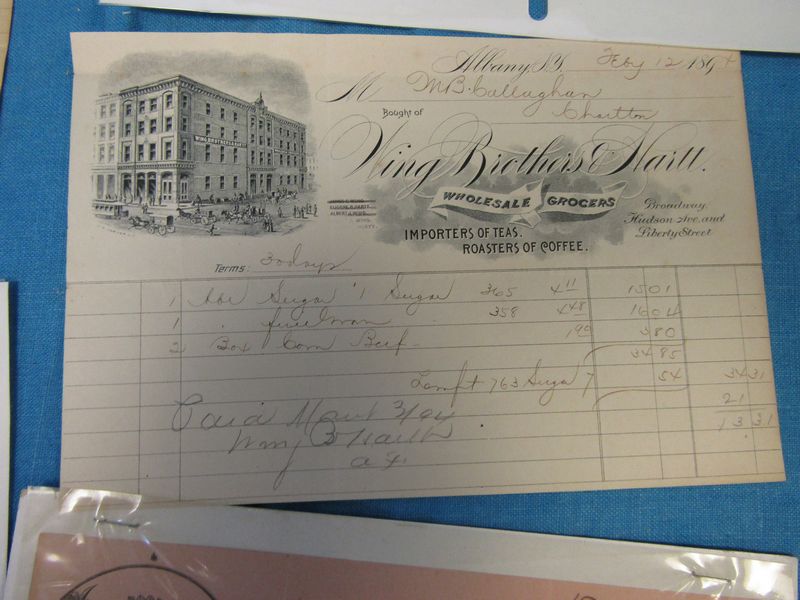 Albany, N.Y. Feby 12 1894
M W.B. Callaghan
Charlton
Bought of
Wing Brothers & Hartt.
WHOLESALE GROCERS
IMPORTERS OF TEAS.
ROASTERS OF COFFEE.
Broadway,
Hudson Ave. and
Liberty Street
Terms: 30 days
1 Sugar 1 Sugar 365 4 11 15 01
1 358 4 48 16 04
2 Box Corn Beef 1 90 3 80
34 85
763 Suga 7 54 34 31
21
13 31
Paid 3/94